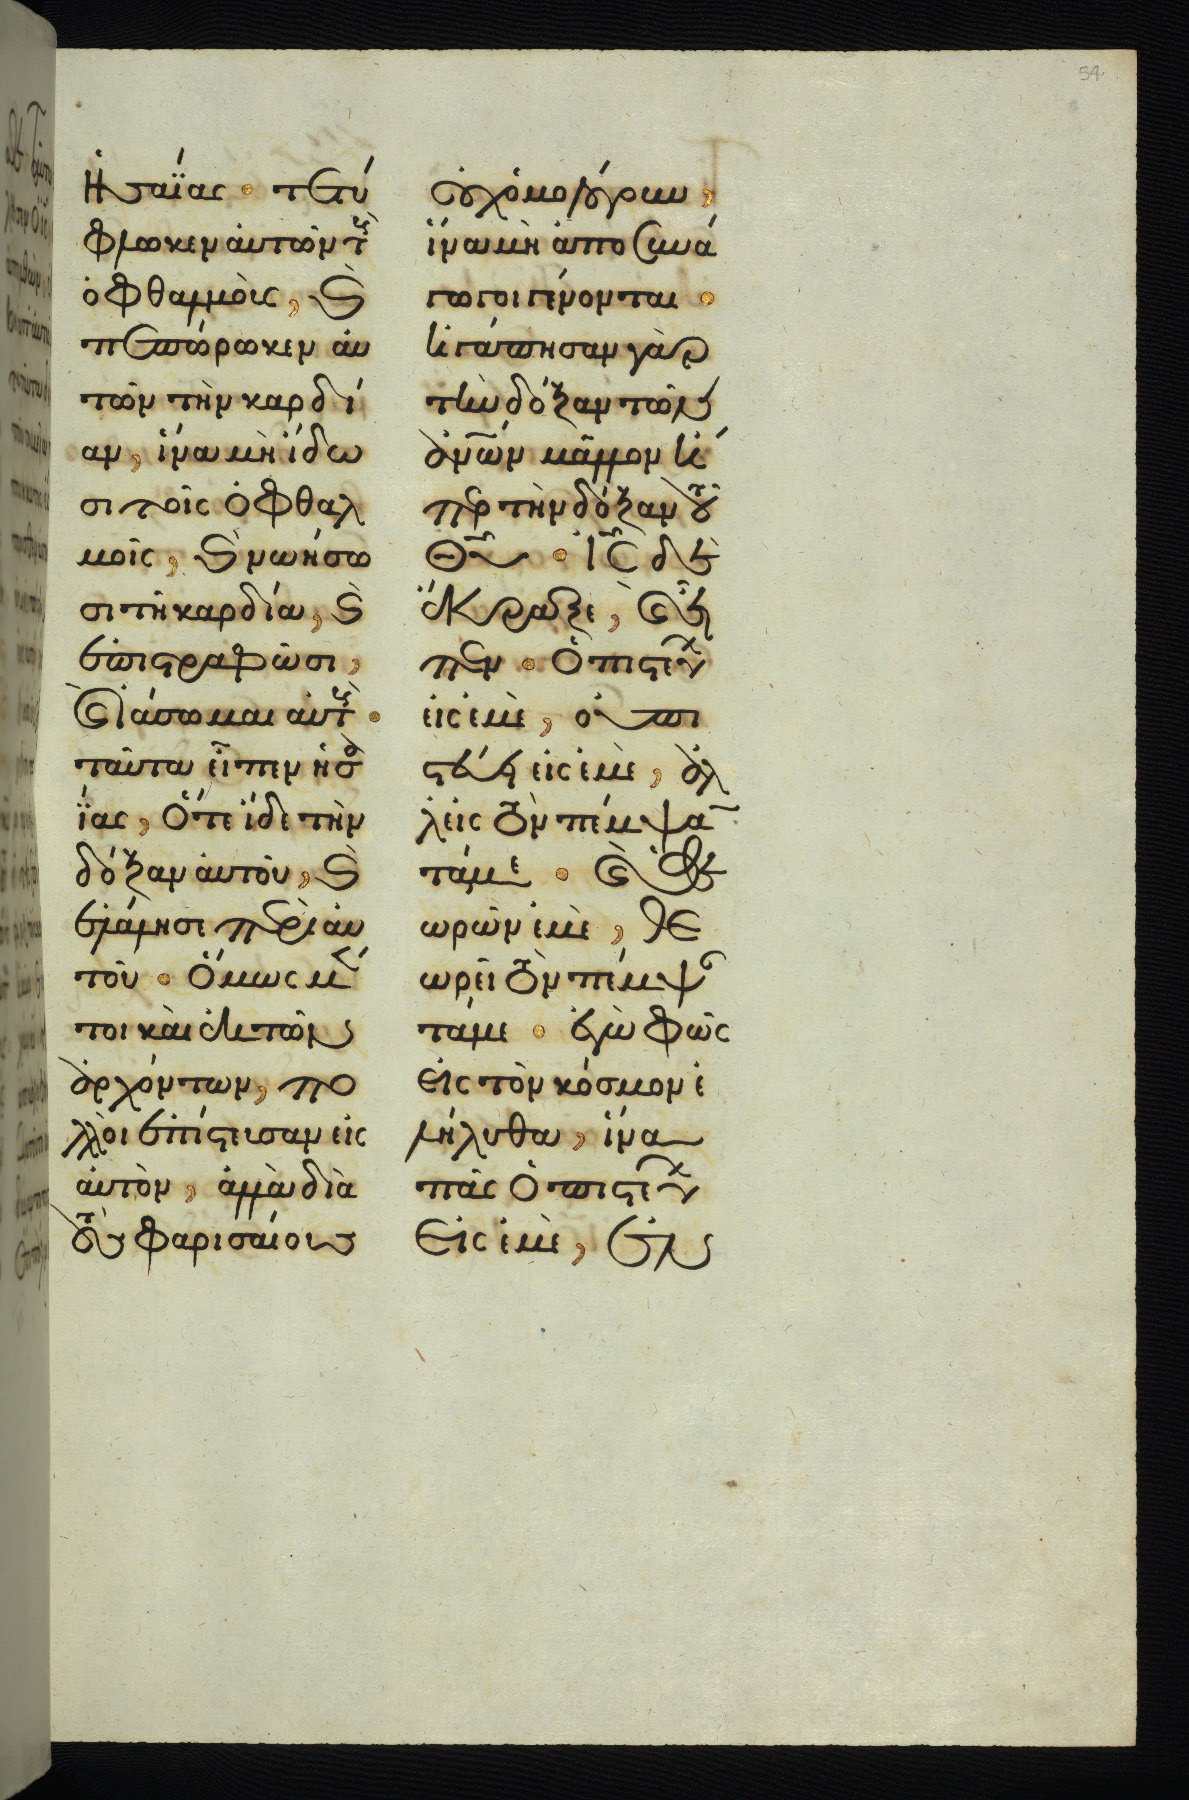 54
Ἡσαΐας · τετύ
φλωκεν αὐτῶν τοὺς
ὀφθαλμοὺς, καὶ
πεπώρωκεν αὐ
τῶν τὴν καρδί
αν, ἵνα μὴ ἴδω
σι τοῖς ὀφθαλ
μοῖς, καὶ νωήσω
σι τῇ καρδία, καὶ
ἐπιστραφῶσι,
καὶ ἰάσωμαι αὐτοὺς ·
ταῦτα εἶπεν ἡσα
ΐας, ὅτε ἴδε τὴν
δόξαν αὐτοῦ, καὶ
ἐλάλησε περὶ αὐ
τοῦ · Ὅμως μέν
τοι καὶ ἐκ τῶν
ἀρχόντων, πο
λλοὶ ἐπίστευσαν εἰς
αὐτὸν, ἀλλὰ διὰ
τοὺς φαρισαίους
οὐχ ὁμολόγουν,
ἵνα μὴ ἀποσυνά
γωγοι γένονται ·
ἠγάπησαν γὰρ
τὴν δόξαν τῶν
ἀνων μᾶλλον ἤ
περ τὴν δόξαν τοῦ
Θυ · ις δὲ
ἔκραξε, καὶ εἶ
πεν · Ὁ πιστεύων
εἰς ἐμὲ, οὐ πι
στεύει εἰς ἐμὲ, ἀλ
λεις τὸν πέμψαν
τά με · καὶ ὁ θε
ωρῶν ἐμὲ, θε
ωρεῖ τὸν πέμψαν
τά με · ἐγὼ φῶς
εἰς τὸν κόσμον ἐ
λήλυθα, ἵνα
πᾶς ὁ πιστεύων
εἰς ἐμὲ, ἐν